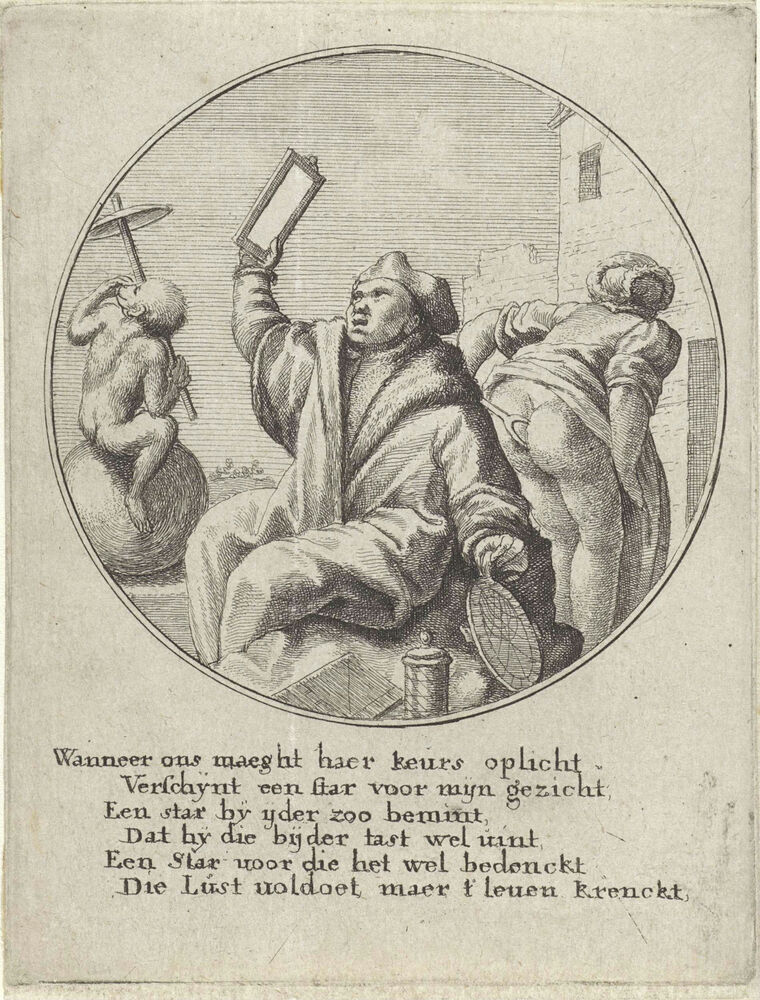 Wanneer ons maeght haer keurs oplicht
Verschÿnt een star voor mijn gezicht,
Een star bÿ yder zoo bemint,
Dat hÿ die bijder tast wel uint,
Een Star uoor die het wel bedenckt
Die Lust uoldoet, maer t' leuen krenckt,